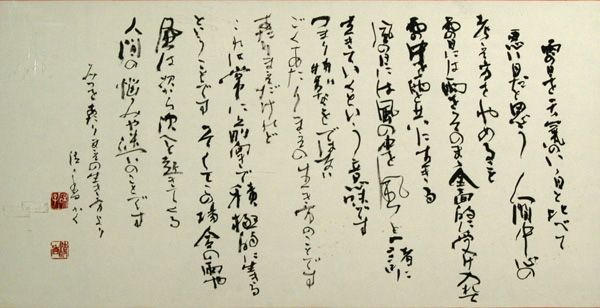 雨の日を天気のいい日と比べて
悪い日だと思う 人間中心の
考え方をやめること
雨の日には雨をそのまま全面的に受け入れて
雨の中を雨と共に生きる
風の日には風の中を風と一者に
生きていくという意味です
つまり
ごくあたりまえの生き方のことです
あたりまえだけれど
これは常に前向きで積極的に生きる
ということです そしてこの場合の雨や
風は次から次へと起きてくる
人間の悩みや迷いのことです
みつを あたりまえの生き方より
かく